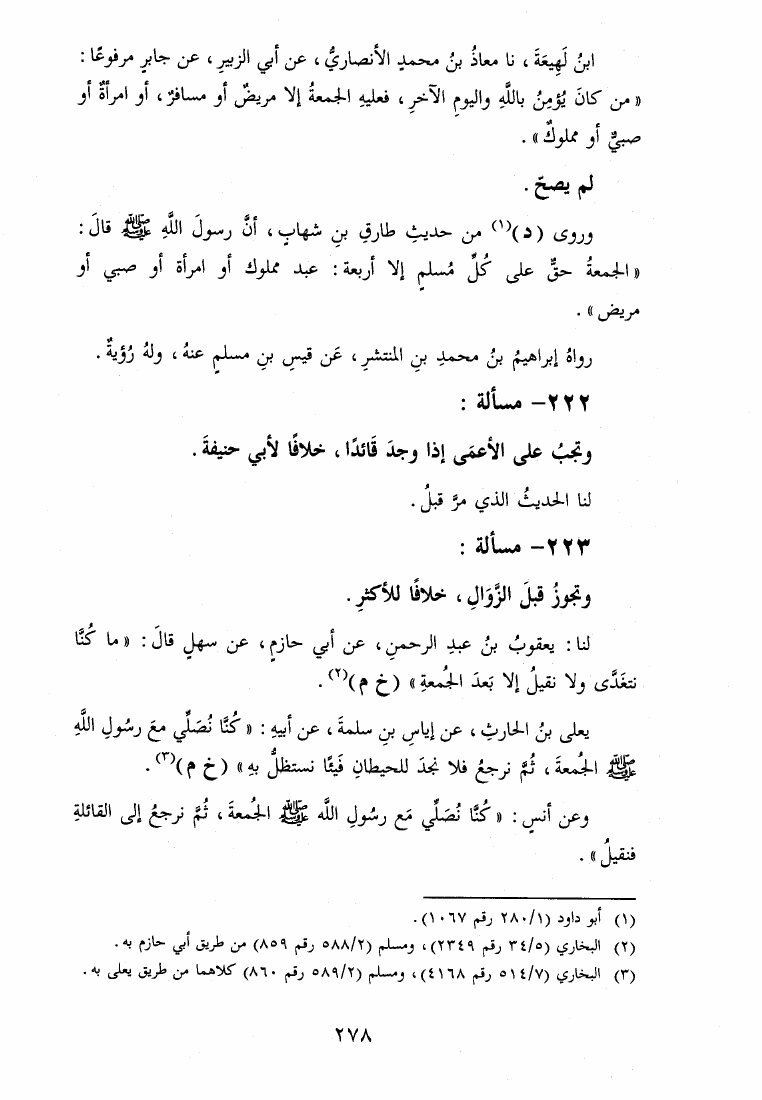 ابنُ لَهِيعَةَ ، نا معاذُ بنُ محمدٍ الأنصاريُّ ، عن أبي الزبيرِ ، عن جابرٍ مرفوعًا :
« من كانَ يُؤمِنُ باللَّهِ واليومِ الآخرِ ، فعليهِ الجمعةُ إلا مريضٌ أو مسافرٌ ، أو امرأةٌ أو
صبيٌّ أو مملوكٌ » .
لم يصحّ .
وروى (د)(١) من حديثِ طارقِ بنِ شهابٍ ، أنَّ رسولَ اللَّهِ ﷺ قالَ :
« الجمعةُ حقٌّ على كُلِّ مُسلمٍ إلا أربعة : عبد مملوك أو امرأة أو صبي أو
مريض » .
رواهُ إبراهيمُ بنُ محمدِ بنِ المنتشرِ ، عَن قيسِ بنِ مسلمٍ عنهُ ، ولهُ رُؤيةٌ .
٢٢٢- مسألة :
وتجبُ على الأعمَى إذا وجدَ قَائدًا ، خلافًا لأبي حنيفةَ .
لنا الحديثُ الذي مرَّ قبلُ .
٢٢٣- مسألة :
وتجوزُ قبلَ الزَّوَالِ ، خلافًا للأكثرِ .
لنا : يعقوبُ بنُ عبدِ الرحمنِ ، عن أبي حازمٍ ، عن سهلٍ قالَ : « ما كُنَّا
نتغَدَّى ولا نقيلُ إلا بَعدَ الجُمعةِ » (خ م)(٢) .
يعلى بنُ الحارثِ ، عن إياسِ بنِ سلمةَ ، عن أبيهِ : « كُنَّا نُصَلِّي معَ رسُولِ اللَّهِ
ﷺ الجُمعةَ ، ثُمَّ نرجعُ فلا نجدُ للحيطانِ فَيئًا نستظلُّ بهِ » (خ م)(٣) .
وعن أنسٍ : « كُنَّا نُصَلِّي مَع رسُولِ اللَّه ﷺ الجُمعةَ ، ثُمَّ نرجعُ إلى القائلةِ
فنقيلُ » .
(١) أبو داود (٢٨٠/١ رقم ١٠٦٧) .
(٢) البخاري (٣٤/٥ رقم ٢٣٤٩) ، ومسلم (٥٨٨/٢ رقم ٨٥٩) من طريق أبي حازم به .
(٣) البخاري (٥١٤/٧ رقم ٤١٦٨) ، ومسلم (٥٨٩/٢ رقم ٨٦٠) كلاهما من طريق يعلى به .
٢٧٨